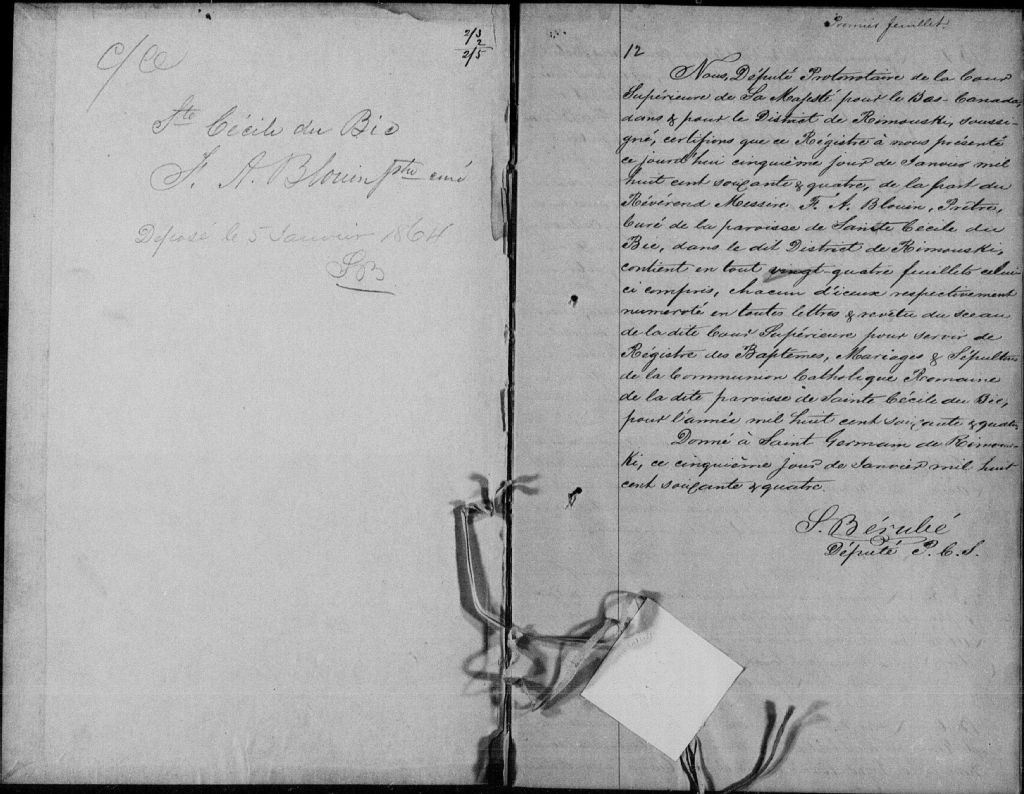 C/Ce
2/3
2
2/5
Ste Cécile du Bic
F. A. Blouin Ptre curé
Déposé le 5 Janvier 1864
SB
Premier feuillet.
12
Nous, Député Protonotaire de la Cour
Supérieure de Sa Majesté pour le Bas-Canada,
dans & pour le District de Rimouski, soussi-
gné, certifions que ce Régistre à nous présenté
ce jourd'hui cinquième jour de Janvier mil
huit cent soixante & quatre, de la part du
Révérend Messire F. A. Blouin, Prêtre,
Curé de la paroisse de Sainte Cécile du
Bic, dans le dit District de Rimouski,
contient en tout vingt quatre feuillets celui
ci compris, chacun d'iceux respectivement
numeroté en toutes lettres & revêtu du sceau
de la dite Cour Supérieure pour servir de
Régistre des Baptêmes, Mariages & Sépultures
de la Communion Catholique Romaine
de la dite paroisse de Sainte Cécile du Bic,
pour l'année mil huit cent soixante & quatre
Donné à Saint Germain de Rimous-
ki, ce cinquième jour de Janvier mil huit
cent soixante & quatre.
S. Bérubé
Député P. C. S.